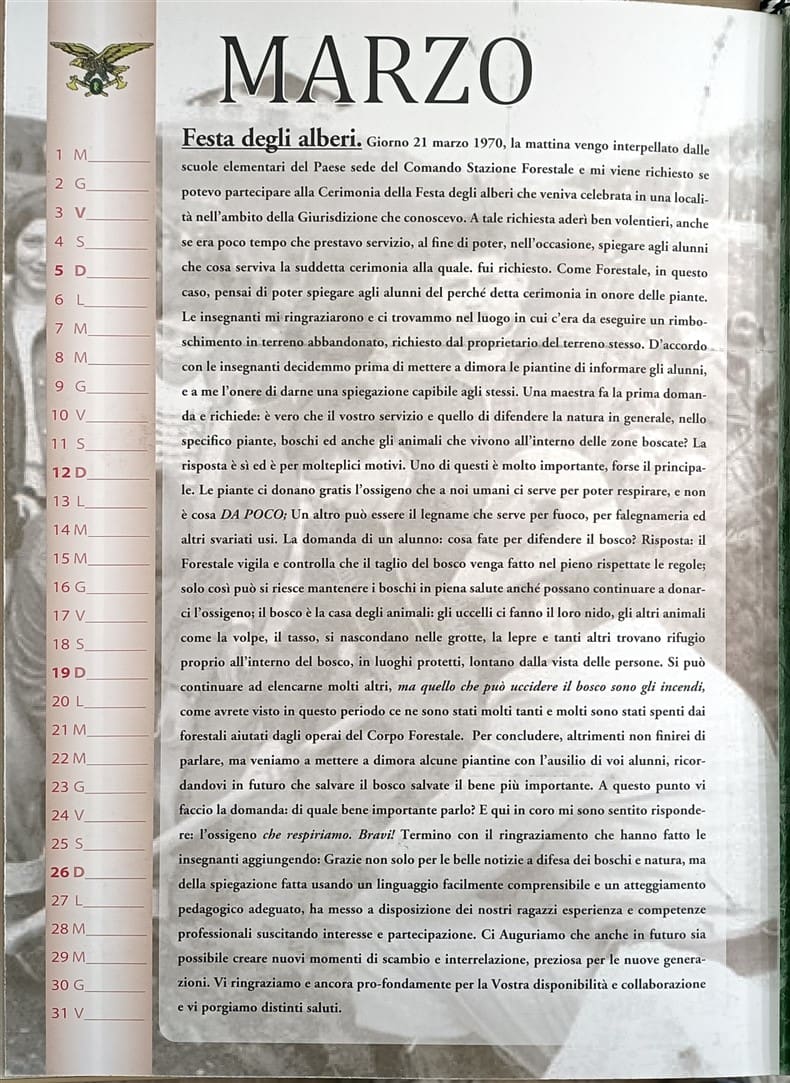 MARZO
1 M
2 G
3 V
4 S
5 D
6 L
7 M
8 M
9 G
10 V
11 S
12 D
13 L
14 M
15 M
16 G
17 V
18 S
19 D
20 L
21 M
22 M
23 G
24 V
25 S
26 D
27 L
28 M
29 M
30 G
31 V
Festa degli alberi. Giorno 21 marzo 1970, la mattina vengo interpellato dalle
scuole elementari del Paese sede del Comando Stazione Forestale e mi viene richiesto se
potevo partecipare alla Cerimonia della Festa degli alberi che veniva celebrata in una locali-
tà nell'ambito della Giurisdizione che conoscevo. A tale richiesta aderì ben volentieri, anche
se era poco tempo che prestavo servizio, al fine di poter, nell'occasione, spiegare agli alunni
che cosa serviva la suddetta cerimonia alla quale. fui richiesto. Come Forestale, in questo
caso, pensai di poter spiegare agli alunni del perché detta cerimonia in onore delle piante.
Le insegnanti mi ringraziarono e ci trovammo nel luogo in cui c'era da eseguire un rimbo-
schimento in terreno abbandonato, richiesto dal proprietario del terreno stesso. D'accordo
con le insegnanti decidemmo prima di mettere a dimora le piantine di informare gli alunni,
e a me l'onere di darne una spiegazione capibile agli stessi. Una maestra fa la prima doman-
da e richiede: è vero che il vostro servizio e quello di difendere la natura in generale, nello
specifico piante, boschi ed anche gli animali che vivono all'interno delle zone boscate? La
risposta è sì ed è per molteplici motivi. Uno di questi è molto importante, forse il principa-
le. Le piante ci donano gratis l'ossigeno che a noi umani ci serve per poter respirare, e non
è cosa DA POCO; Un altro può essere il legname che serve per fuoco, per falegnameria ed
altri svariati usi. La domanda di un alunno: cosa fate per difendere il bosco? Risposta: il
Forestale vigila e controlla che il taglio del bosco venga fatto nel pieno rispettate le regole;
solo così può si riesce mantenere i boschi in piena salute anché possano continuare a donar-
ci l'ossigeno; il bosco è la casa degli animali: gli uccelli ci fanno il loro nido, gli altri animali
come la volpe, il tasso, si nascondano nelle grotte, la lepre e tanti altri trovano rifugio
proprio all'interno del bosco, in luoghi protetti, lontano dalla vista delle persone. Si può
continuare ad elencarne molti altri, ma quello che può uccidere il bosco sono gli incendi,
come avrete visto in questo periodo ce ne sono stati molti tanti e molti sono stati spenti dai
forestali aiutati dagli operai del Corpo Forestale. Per concludere, altrimenti non finirei di
parlare, ma veniamo a mettere a dimora alcune piantine con l'ausilio di voi alunni, ricor-
dandovi in futuro che salvare il bosco salvate il bene più importante. A questo punto vi
faccio la domanda: di quale bene importante parlo? E qui in coro mi sono sentito risponde-
re: l'ossigeno che respiriamo. Bravi! Termino con il ringraziamento che hanno fatto le
insegnanti aggiungendo: Grazie non solo per le belle notizie a difesa dei boschi e natura, ma
della spiegazione fatta usando un linguaggio facilmente comprensibile e un atteggiamento
pedagogico adeguato, ha messo a disposizione dei nostri ragazzi esperienza e competenze
professionali suscitando interesse e partecipazione. Ci Auguriamo che anche in futuro sia
possibile creare nuovi momenti di scambio e interrelazione, preziosa per le nuove genera-
zioni. Vi ringraziamo e ancora pro-fondamente per la Vostra disponibilità e collaborazione
e vi porgiamo distinti saluti.